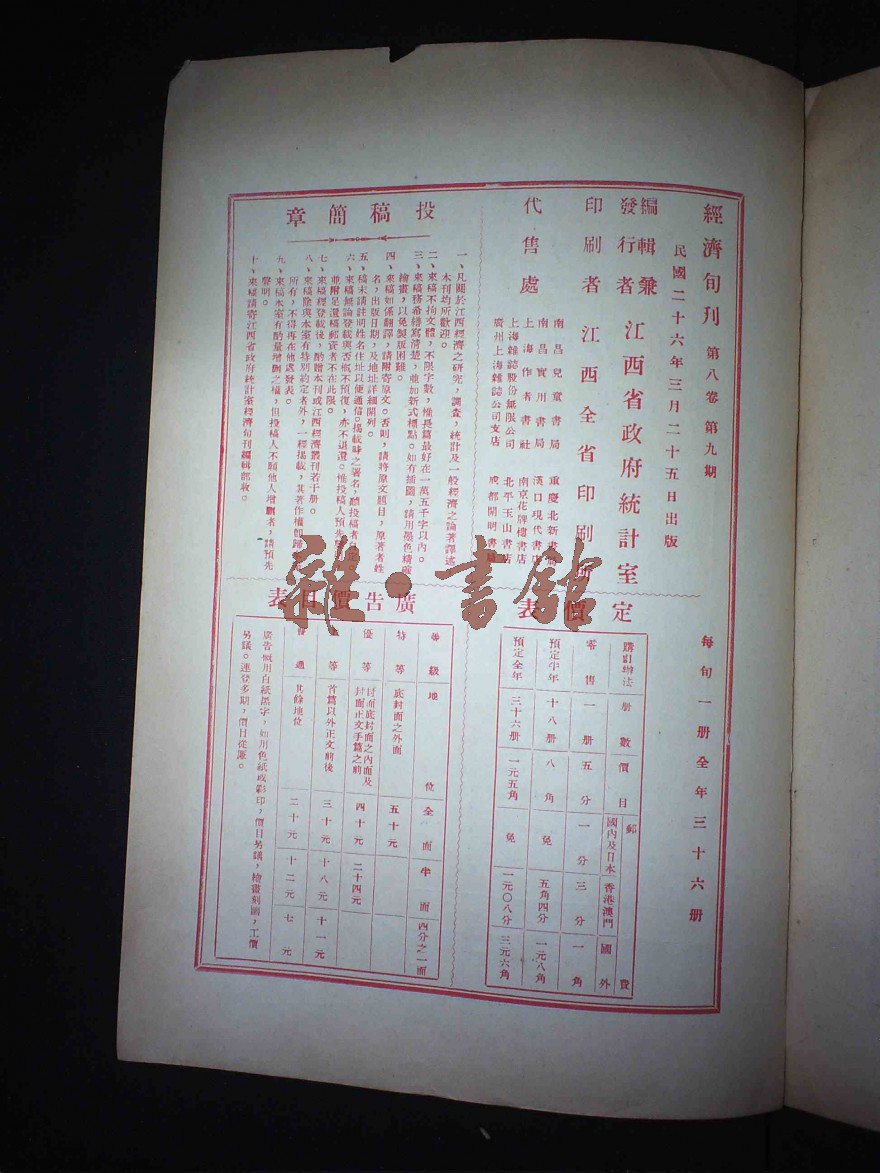 經濟旬刊 第八卷第九期
民國二十六年三月二十五日出版
每旬一册全年三十六册
編輯兼
發行者 江西省政府統計室
印刷者 江西全省印刷所
代售處
南昌兒童書局
南昌實用書局
上海作者書社
上海雜誌股份無限公司
廣州上海雜誌公司支店
重慶北新書局
漢口現代書店
南京花牌樓書店
北平玉山書店
成都開明書
投稿簡章
一、凡關於江西經濟之研究,調查,統計及一般經濟之論著譯述
本刊均所歡迎。
二、來稿不拘文體,不限字數,惟長篇最好在一萬五千字以內。
三、來稿務希繕寫清楚,並加新式標點。如有插圖,請用墨色精確
繪畫,以免製版困難。
四、來稿如係翻譯,請附寄原文。否則,請將原文題目,原著者姓
名,出版日期,及地址詳細開列。
五、稿末請註明姓名住址以便通信。揭載時之署名,聽投稿者自
六、來稿無論登載與否概不預復,亦不退還。惟投稿人預先
並附足還稿郵資者不在此限。
七、來稿經登載後,酌贈本刊或江西經濟叢刊若干册。
八、來稿除與本室有特別約定者外,一經揭載,其著作權卽歸
所有,不得再在他處發表。
九、來稿本室有酌量增删之權,但投稿人不願他人增删者,請預先
聲明。
十、來稿請寄江西省政府統計室經濟旬刊編輯部收。
定價表
購訂辦法 册數 價目 郵費 國內及日本 香港澳門 國外
零售 一册 五分 一分 三分 一角
預定半年 十八册 八角 免 五角四分 一元八角
預定全年 三十六册 一元五角 免 一元〇八分 三元六角
廣告價目表
等級 地位 全面 半面 四分之一面
特等 底封面之外面 五十元
優等 封面底封面之內面及封面正文手篇之前 四十元 二十四元
等 首篇以外正文前後 三十元 十八元 十一元
普通 其餘地位 二十元 十二元 七元
廣告概用白紙黑字,如用色紙或彩印,價目另議,繪畫刻圖,工價
另議。連登多期,價目從廉。
雜·書館